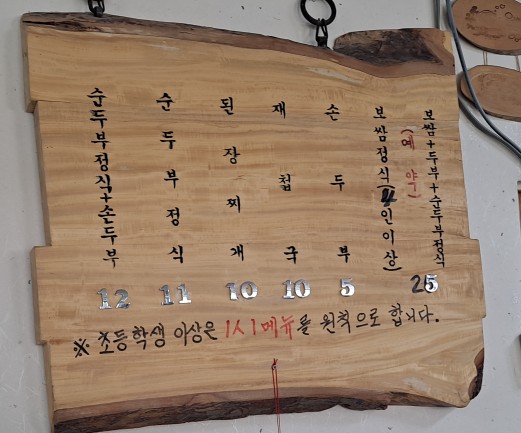 보쌈+두부+순두부정식
(예약)
보쌈정식(4인이상)
25
손두부
5
재첩국
10
된장찌개
10
순두부정식
11
순두부정식+손두부
12
※ 초등학생 이상은 1人 1메뉴를 원칙으로 합니다.